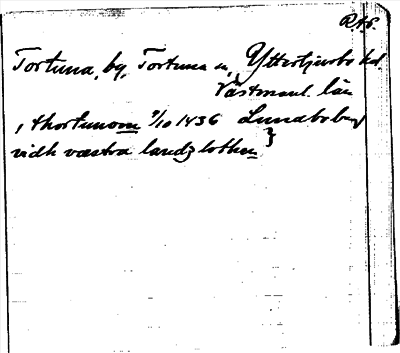 RAp.
Tortuna, by, Tortuna sn, Yttertjurbo hd.
Västmanl. län
, thortunom 9/10 1436 Lundboberg
vidh væstra landz lothen }